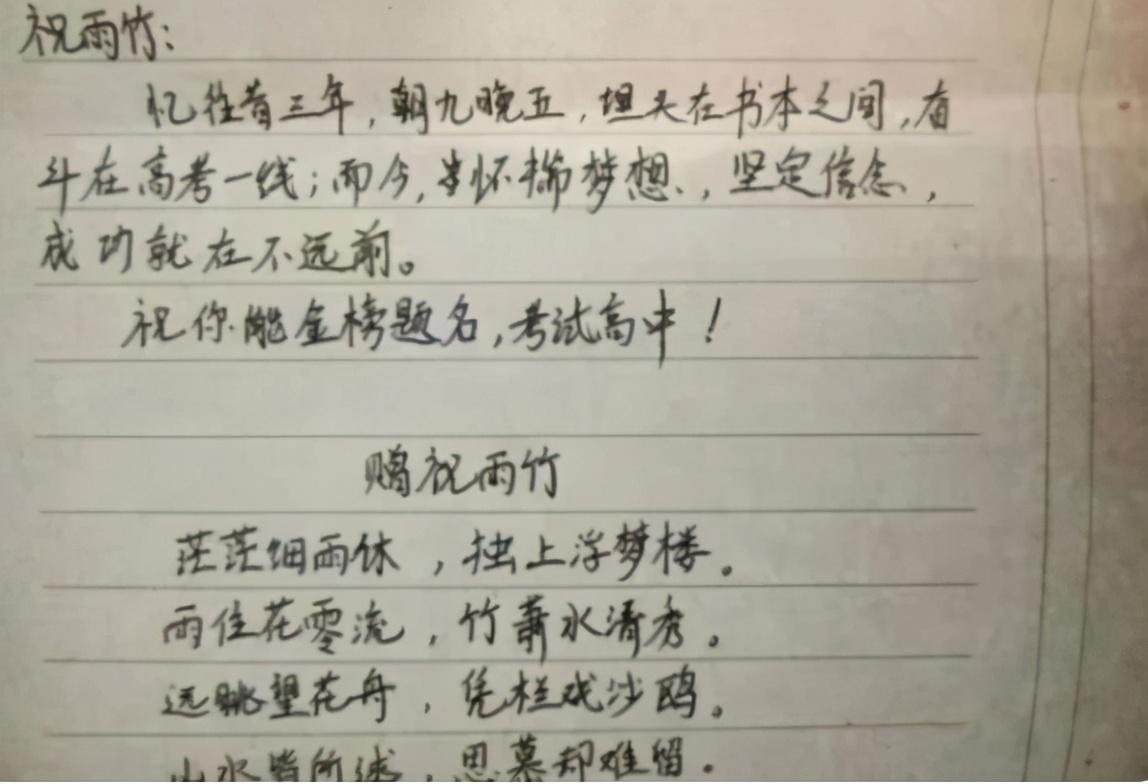 祝雨竹：
忆往昔三年，朝九晚五，埋头在书本之间，奋
斗在高考一线；而今，怀揣梦想，坚定信念，
成功就在不远前。
祝你能金榜题名，考试高中！
赠祝雨竹
茫茫细雨休，独上浮梦楼。
雨住花零流，竹萧水清秀。
远眺望花舟，凭栏戏沙鸥。
山水皆所述，思慕却难留。